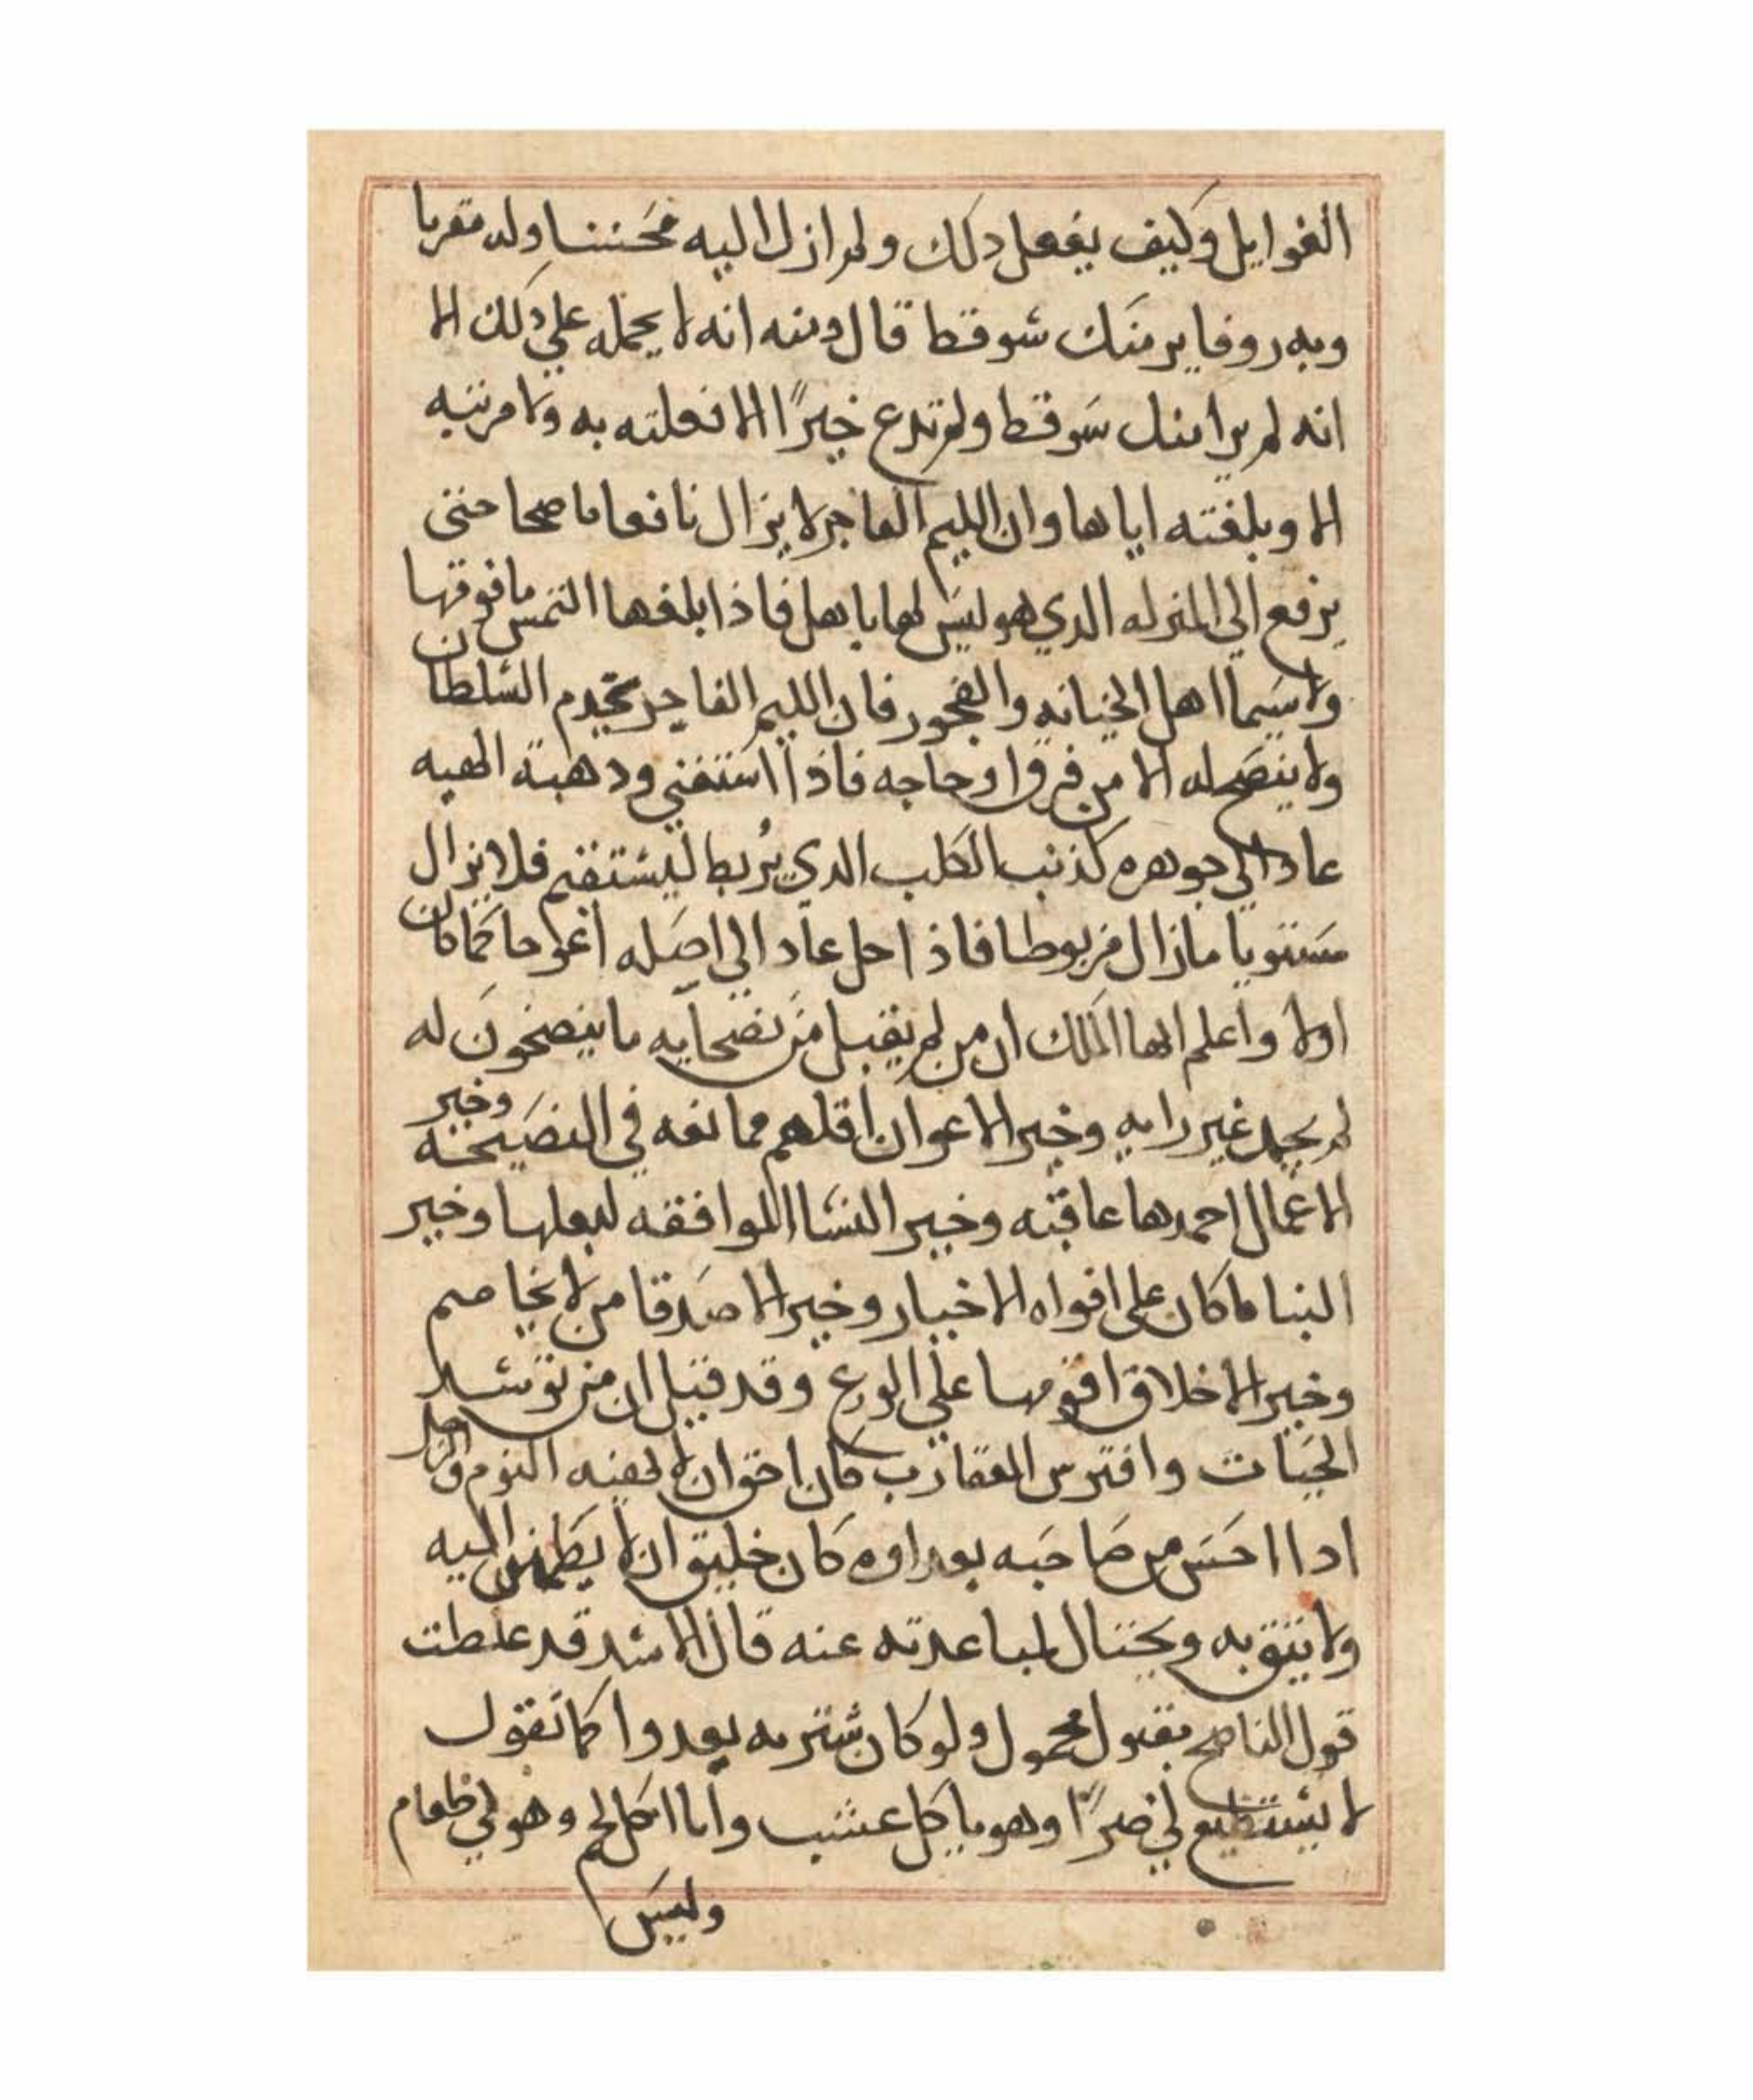 الغوايل وكيف يفعل دلك ولم ازل اليه محسنا وله مقربا
وبه روفا ير منك سو قط قال دمنه انه لا يحمله على دلك الا
انه لم ير منك سو قط ولم تدع خيرًا الا فعلته به ولا مرتبه
الا وبلغته اياها وان الليم الفاجر لا يزال نافعا ناصحا حتى
يرفع الي المنزله الدي هو ليس لها باهل فاذا بلغها التمس ما فوقها
ولا سيما اهل الخيانه والفجور فان الليم الفاجر يخدم السلطان
ولا ينصح له الا من فرق او حاجه فاذا استغني ودهبة الهيبه
عاد الي جوهره كذنب الكلب الدي يُربط ليستقيم فلا يزال
مستويا مازال مربوطا فاذا حل عاد الي اصله اعوجا كما كان
اولا واعلم ايها الملك ان من لم يقبل من نصحايه ما ينصحون له
لم يحمد غير رايه وخير الاعوان اقلهم ممانعه في النصيحه وخير
الاعمال احمدها عاقبه وخير النسا الموافقه لبعلها وخير
الثنا ما كان على افواه الاخيار وخير الاصدقا من لا يخاصم
وخير الاخلاق اقومها علي الورع وقد قيل ان من توسد
الحيات وافترس العقارب كان احق ان لا يهنيه النوم والرجل
ادا احس من صاحبه بعداوه كان خليق ان لا يطمئن اليه
ولا يثق به ويحتال لمباعدته عنه قال الاسد قد غلطت
قول الناصح مقبول محمول ولو كان شتربه يعدوا كما تقول
لا يستطيع لي ضرًا وهو ياكل عشب وانا اكل لحم وهو لي طعام
وليس